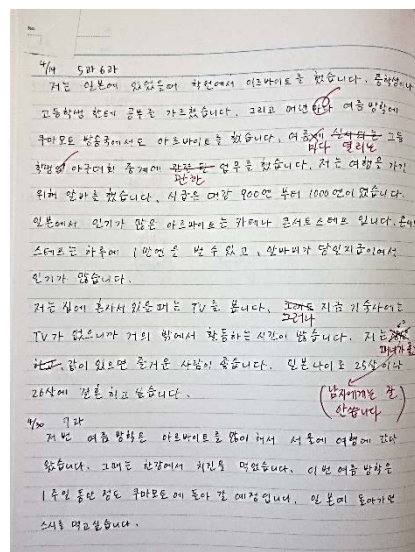 4/14 5과 6과
저는 일본에 있었을때 학원에서 아르바이트를 했습니다. 중학생이나
고등학생 한테 공부를 가르쳤습니다. 그리고 매년마다 여름 방학에
쿠마모토 방송국에서도 아르바이트를 했습니다. 여름에 고등
마다 열리는
학생 야구대회 중계에 관련된 업무를 했습니다. 저는 여행을 가기
관한
위해 알바를 했습니다. 시급은 대강 900엔 부터 1000엔이었습니다.
일본에서 인기가 많은 아르바이트는 카페나 콘서트스태프 입니다. 콘서트
스태프는 하루에 1만엔을 벌 수 있고, 알바비가 당일지급이여서
인기가 많습니다.
저는 집에 혼자서 있을 때는 TV를 봅니다. 지금 기숙사에는
그러나
TV가 없으니까 거의 밖에서 활동하는 시간이 많습니다. 저는
하고 같이 있으면 즐거운 사람이 좋습니다. 일본나이로 25살이나
26살에 결혼 하고 싶습니다.
(남자에게는 잘
안씁니다)
4/30 7과
저번 여름 방학은 아르바이트를 많이 해서 서울에 여행에 갔다
왔습니다. 그때는 한강에서 치킨을 먹었습니다. 이번 여름 방학은
1주일 동안 정도 쿠마모토에 돌아 갈 예정입니다. 일본에 돌아가면
스시를 먹고싶습니다.